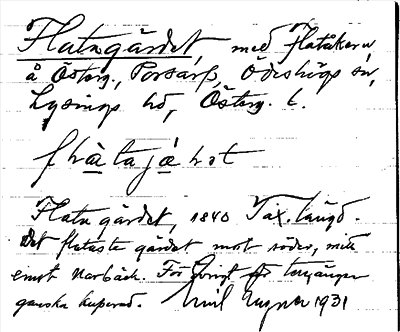 Flatagärdet, med Flatåkern
å Österg., Porsarp, Ödeshögs sn,
Lysings hd, Österg. l.
flàtajǽṛet
Flata gärdet, 1840 Tax. längd.
Det flataste gärdet mot söder, mitt
emot Narbäck. För övrigt terrängen
ganska kuperad. Emil 1931